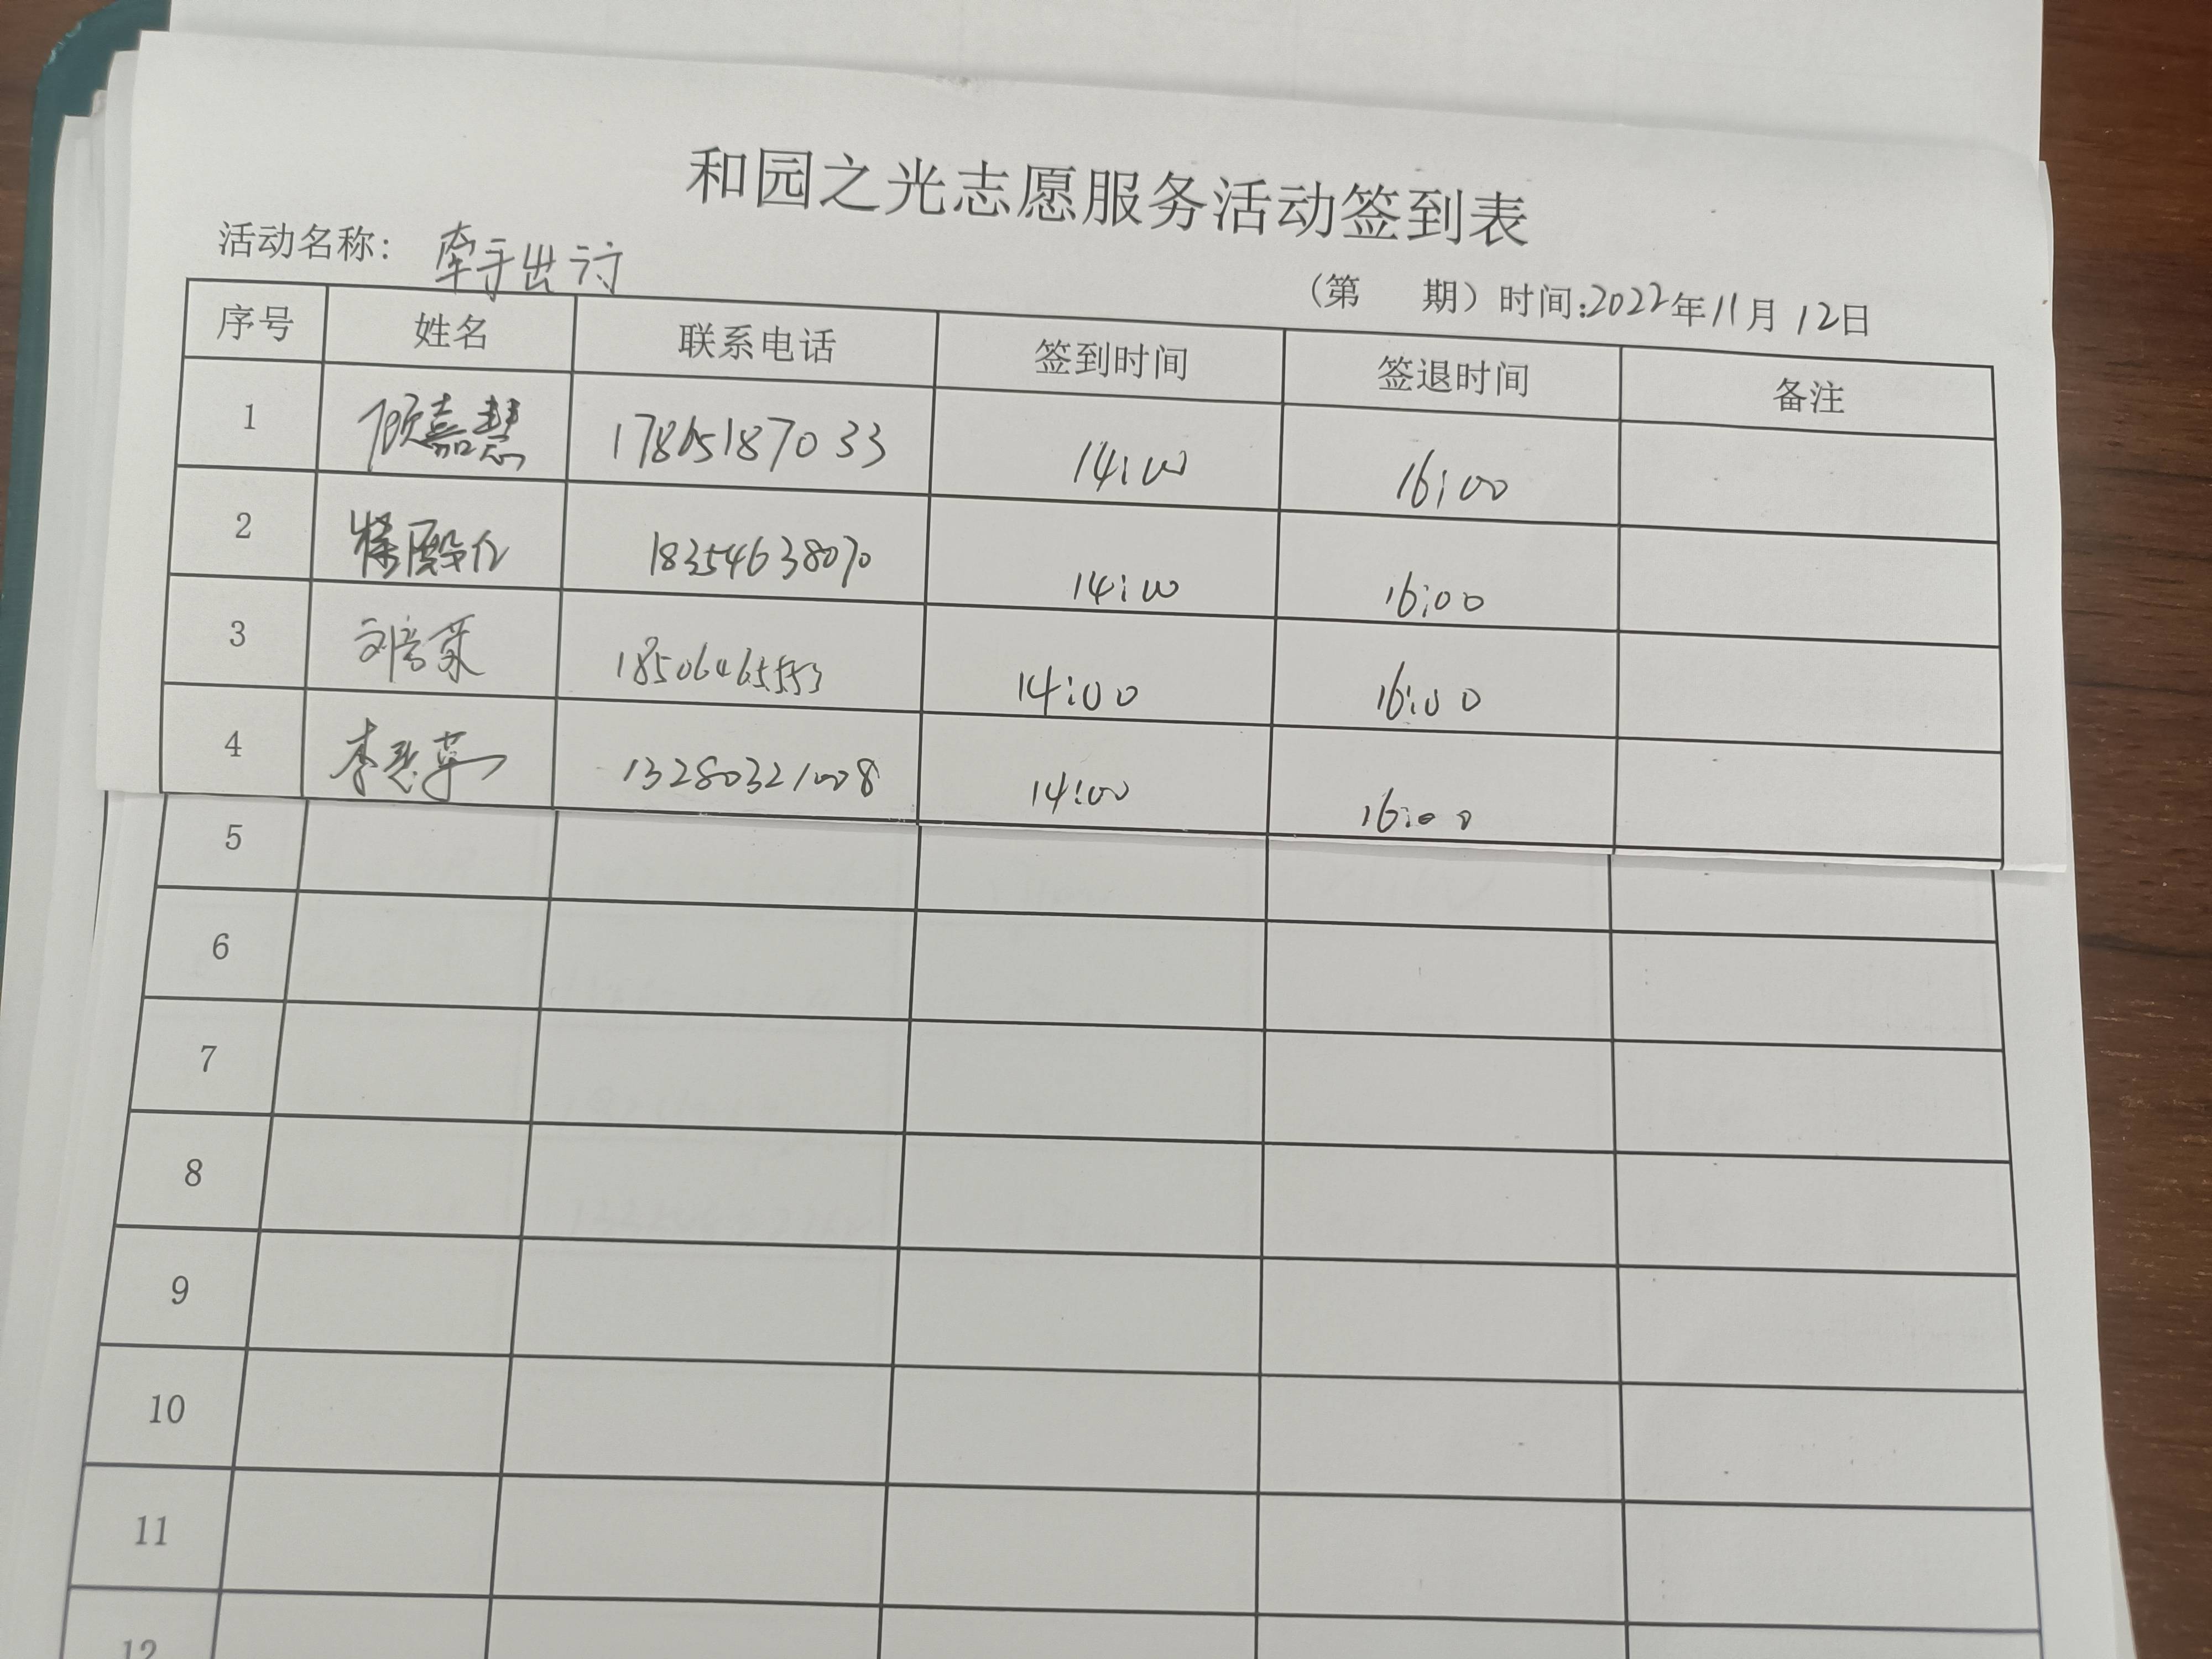 和园之光志愿服务活动签到表
活动名称: 牵手出讨
(第 期) 时间:2022年11月12日
序号 姓名 联系电话 签到时间 签退时间 备注
1 顾嘉慧 17865187033 14:00 16:00
2 18354638070 14:00 16:00
3 刘 18506465553 14:00 16:00
4 李 13280321008 14:00 16:00
5
6
7
8
9
10
11
12